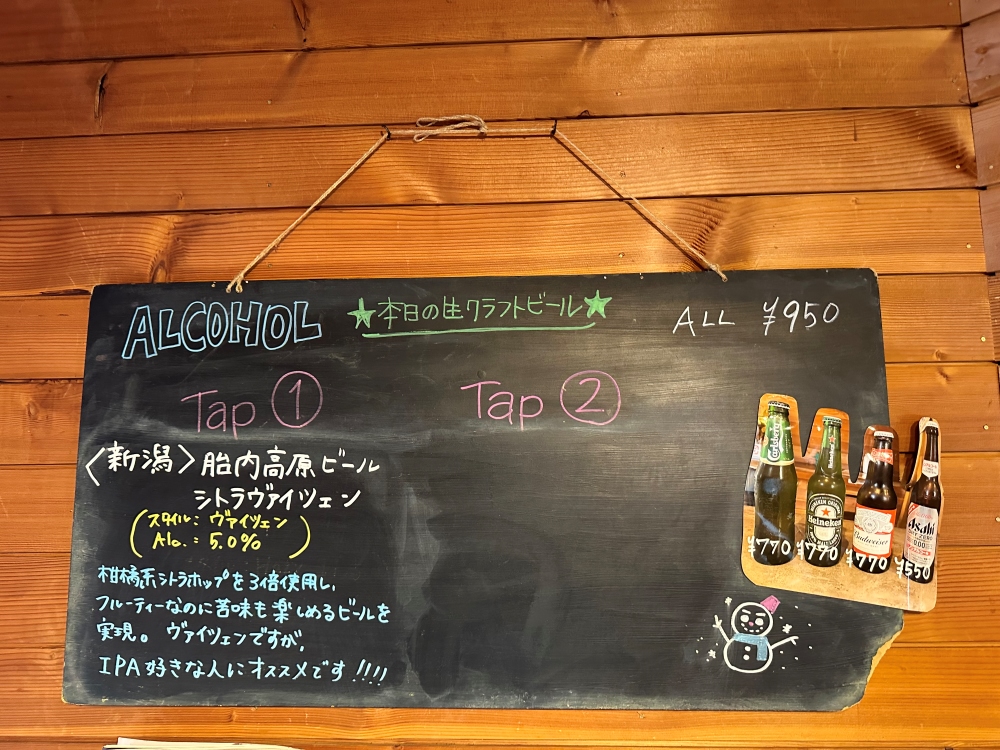 ALCOHOL
★本日の生クラフトビール★
ALL ¥950
Tap ①
〈新潟〉胎内高原ビール
シトラヴァイツェン
(スタイル: ヴァイツェン
Alc.: 5.0%)
柑橘系シトラホップを3倍使用し、
フルーティーなのに苦味も楽しめるビールを
実現。ヴァイツェンですが、
IPA好きな人にオススメです!!!!
Tap ②
Carlsberg
¥770
Heineken
¥770
Budweiser
¥770
Asahi
¥550